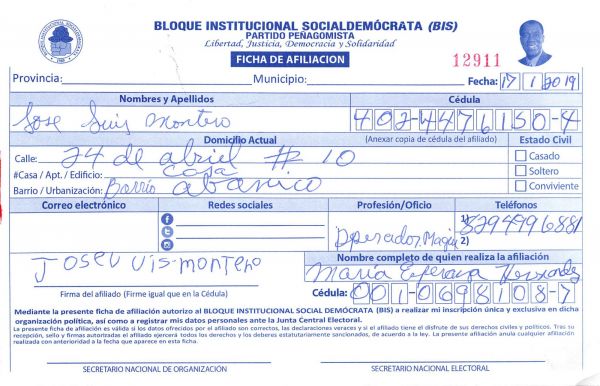 BLOQUE INSTITUCIONAL SOCIALDEMÓCRATA (BIS)
PARTIDO PEÑAGOMISTA
Libertad, Justicia, Democracia y Solidaridad
FICHA DE AFILIACION
12911
Provincia: Municipio: Fecha: 17 1 2019
Nombres y Apellidos Cédula
Jose Luis Montero 402-4476150-4
Domicilio Actual (Anexar copia de cédula del afiliado) Estado Civil
Calle: 24 de abril # 10 Casado
#Casa / Apt. / Edificio: Casa Soltero
Barrio / Urbanización: Barrio abanico Conviviente
Correo electrónico Redes sociales Profesión/Oficio Teléfonos
1) 8294996881
Operador 2)
JOSELUIS-montero
Nombre completo de quien realiza la afiliación
Maria Hernandez
Firma del afiliado (Firme igual que en la Cédula) Cédula: 001-0698108-7
Mediante la presente ficha de afiliación autorizo al BLOQUE INSTITUCIONAL SOCIAL DEMÓCRATA (BIS) a realizar mi inscripción única y exclusiva en dicha
organización política, así como a registrar mis datos personales ante la Junta Central Electoral.
La presente ficha de afiliación es válida si los datos ofrecidos por el afiliado son correctos, las declaraciones veraces y si el afiliado tiene el disfrute de sus derechos civiles y políticos. Tras su
recepción, sello y firmas autorizadas el afiliado ejercerá todos los derechos y los deberes estatutariamente sancionados, de acuerdo a la ley. La presente afiliación anula cualquier afiliación
realizada con anterioridad a la fecha que aparece en esta ficha.
SECRETARIO NACIONAL DE ORGANIZACIÓN SECRETARIO NACIONAL ELECTORAL